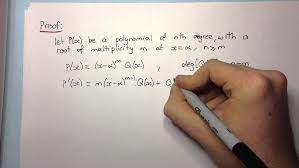 Proof:
let P(x) be a polynomial of nth degree, with a
root of multiplicity m at x=α, n≥m
P(x) = (x-α)^m Q(x) , deg(Q
P'(x) = m(x-α)^(m-1) Q(x) + Q